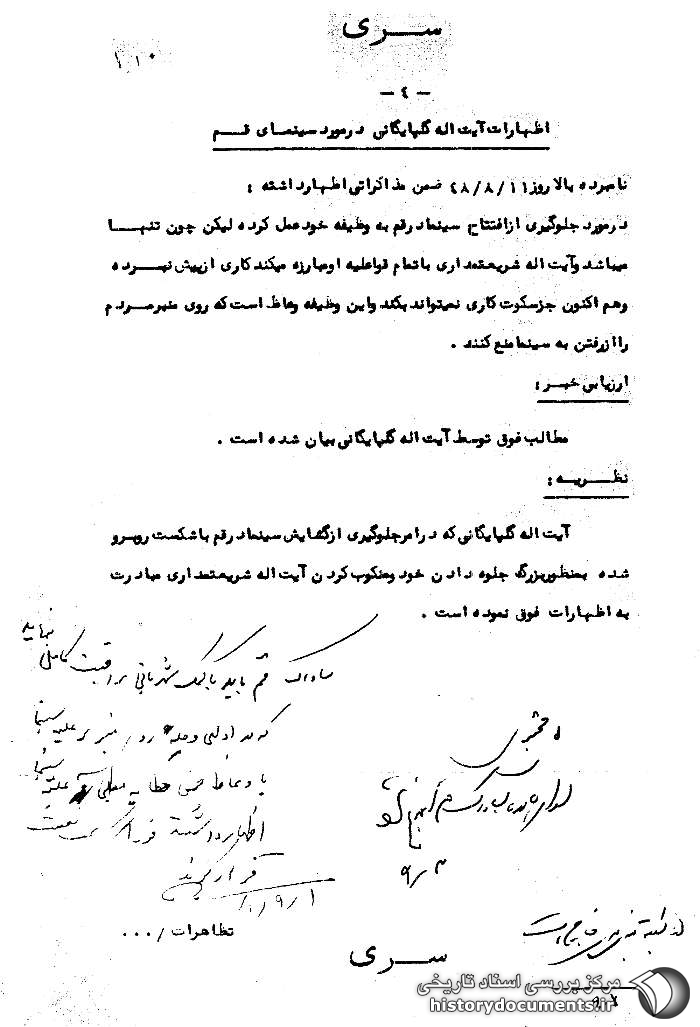 سری
۱٫۱۰
- ٤ -
اظهارات آیت اله گلپایگانی در مورد سینمای قم
نامبرده بالا روز ۴۸/۸/۱۱ ضمن مذاکراتی اظهار داشته :
در مورد جلوگیری از افتتاح سینما در قم به وظیفه خود عمل کرده لیکن چون تنها
میباشد و آیت اله شریعتمداری با تمام قوا علیه او مبارزه میکند کاری از پیش نبرده
و هم اکنون جز سکوت کاری نمیتواند بکند و این وظیفه وعاظ است که روی منبر مردم
را از رفتن به سینما منع کنند .
ارزیابی خبر :
مطالب فوق توسط آیت اله گلپایگانی بیان شده است .
نظریه :
آیت اله گلپایگانی که در امر جلوگیری از گشایش سینما در قم با شکست روبرو
شده بمنظور بزرگ جلوه دادن خود و منکوب کردن آیت اله شریعتمداری مبادرت
به اظهارات فوق نموده است .
ساواک قم باید با کمک شهربانی مراقبت کامل نماید
که در روی منبر بر علیه سینما
علیه سینما
اظهار داشت فورا تحت
قرار گیرند
۹/۱
۹/۳
تظاهرات / ...
سری
مرکز بررسی اسناد تاریخی
historydocuments.ir